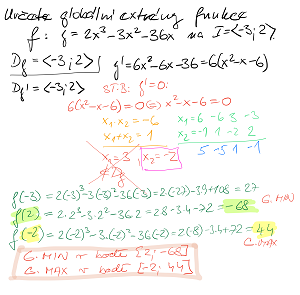 Určete globální extrémy funkce
f: y = 2x³-3x²-36x na I=<-3;2>.
Df = <-3;2> y' = 6x²-6x-36 = 6(x²-x-6)
Df' = <-3;2> S.T.B: y'=0:
6(x²-x-6)=0 <=> x²-x-6=0
x₁·x₂ = -6 x₁=6 -6 3 -3
x₁+x₂ = 1 x₂=-1 1 -2 2
x₁=3 x₂=-2 5 -5 1 -1
∉Df
f(-3) = 2(-3)³-3(-3)²-36(-3) = 2(-27)-3·9+108 = 27
f(2) = 2·2³-3·2²-36·2 = 2·8-3·4-72 = -68 G.MIN
f(-2) = 2(-2)³-3·(-2)²-36(-2) = 2(-8)-3·4+72 = 44
G.MAX
G.MIN v bodě [2;-68]
G.MAX v bodě [-2;44]